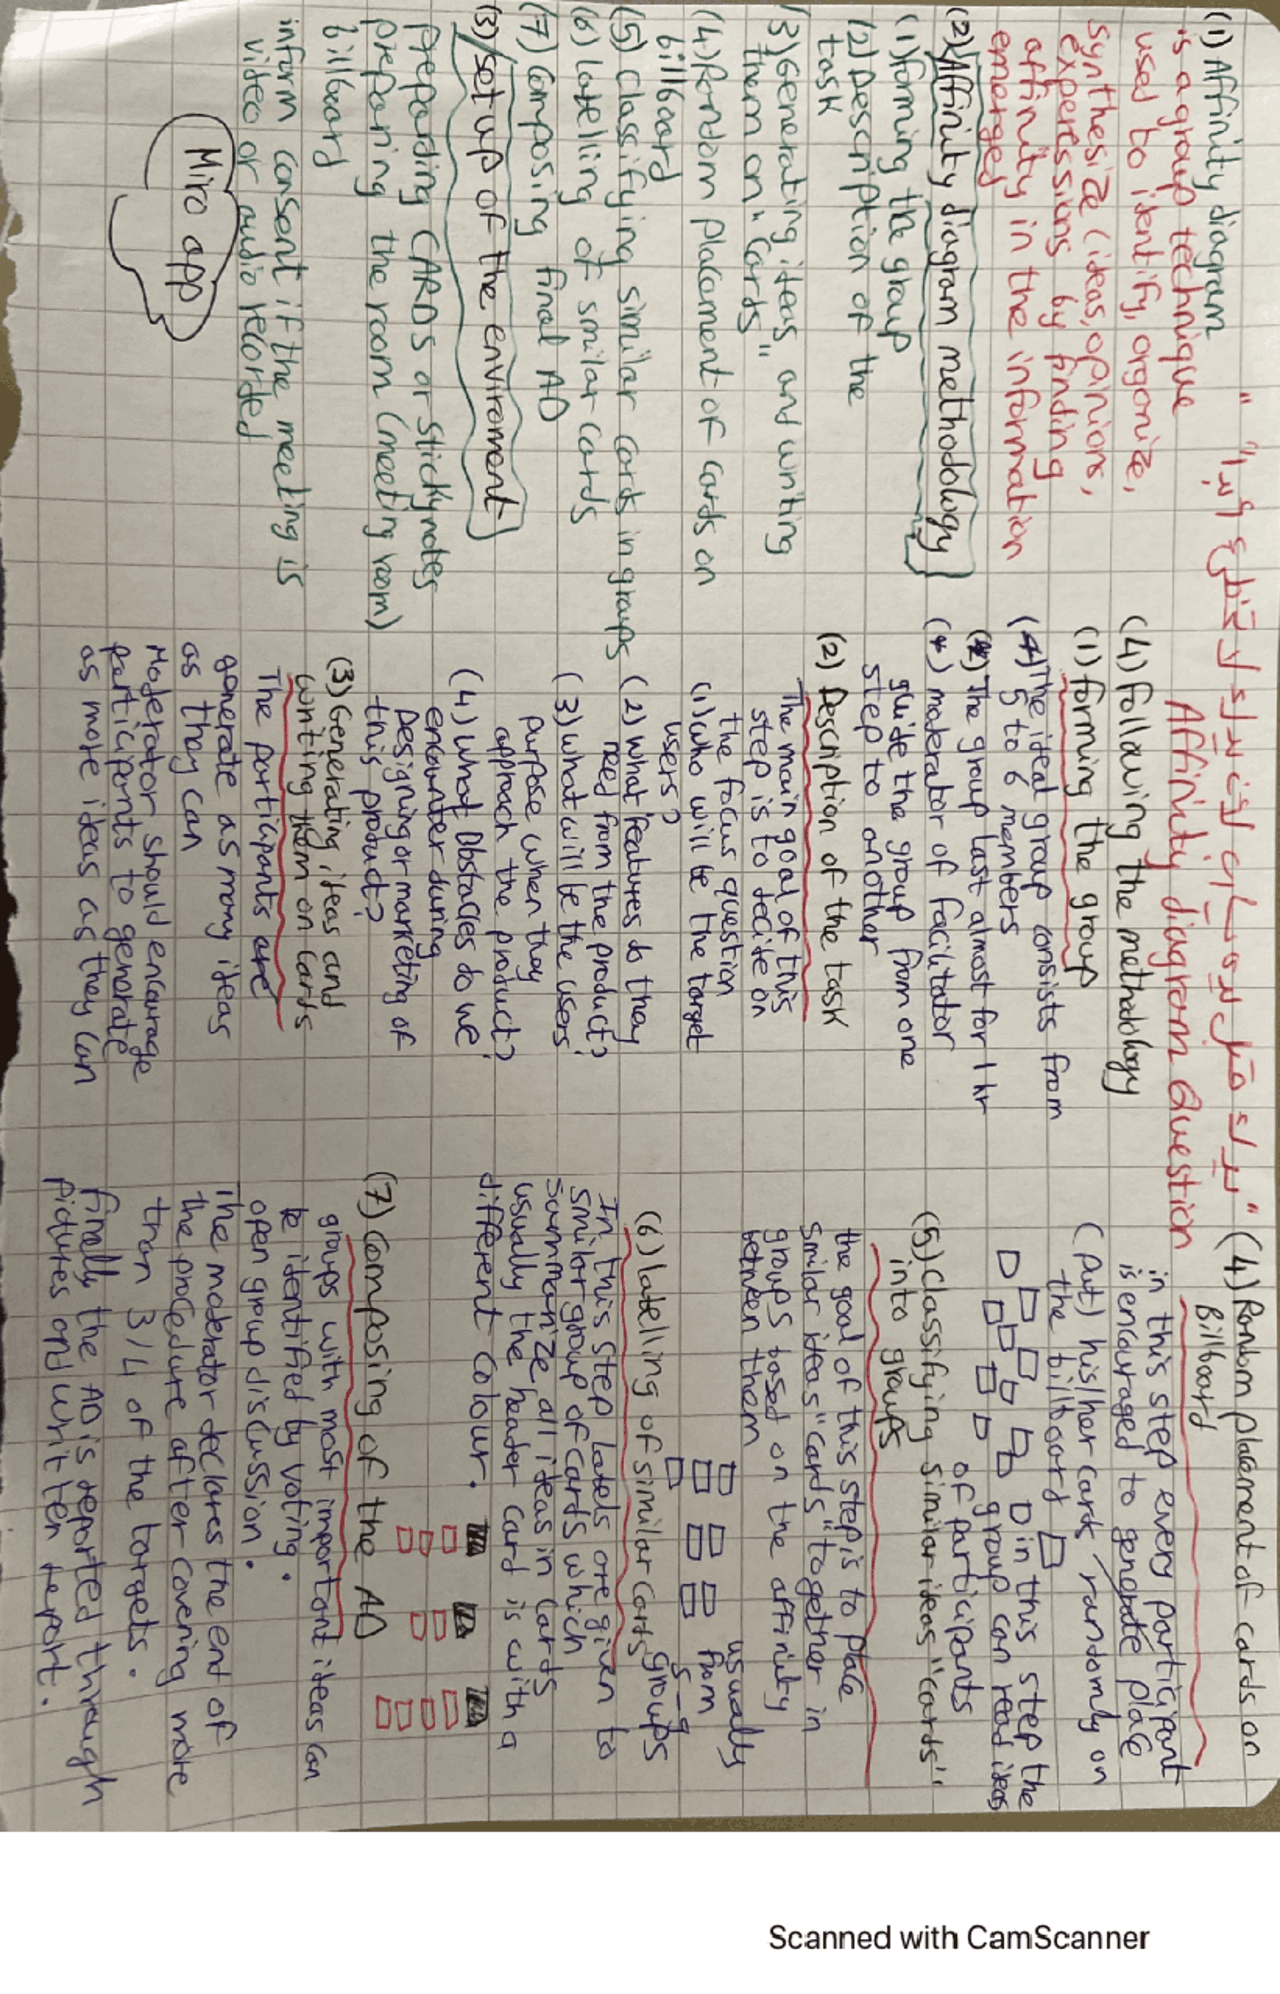 Affinity diagram Question
(1) Affinity diagram
is a group technique
used to identify, organize,
synthesize (ideas, opinions,
experessions by finding
affinity in the information
emerged
(2) Affinity diagram methodology
(1) forming the group
(2) Description of the
task
(3) Generating ideas and writing
them on "Cards"
(4) Random placement of cards on
billboard
(5) Classifying similar cards in groups
(6) labelling of smilar cards
(7) Composing final AD
(3) set up of the enviroment
preparding CARDs or stickynotes
preparing the room (meeting room)
billboard
inform consent if the meeting is
video or audio recorded
Miro app
(4) following the methodology
(1) forming the group
(*) The ideal group consists from
5 to 6 members
(*) The group last almost for 1 hr
(*) moderator of facilitator
guide the group from one
step to another
(2) Description of the task
The main goal of this
step is to decide on
the focus question
(1) who will be the target
users?
(2) what features do they
need from the product?
(3) what will be the users
purpose when they
approach the product?
(4) what Obstacles do we
encounter during
Designing or marketing of
this product?
(3) Generating ideas and
writing them on Cards
The participants are
generate as many ideas
as they can
Moderator should encourage
participants to generate
as more ideas as they can
(4) Random placement of cards on
Billboard
in this step every participant
is encouraged to generate place
(put) his/her cards randomly on
the billboard
in this step the
group can read ideas
of participants
(5) Classifying similar ideas "cards"
into groups
the goal of this step is to place
smilar ideas "cards" together in
groups based on the affinity
between them
usually
from
5-9
groups
(6) labelling of similar cards
In this step labels are given to
smilar group of cards which
summarize all ideas in cards
usually the header card is with a
different Colour.
(7) Composing of the AD
groups with most important ideas can
be identified by voting.
open group discussion.
The moderator declares the end of
the procedure after covering more
than 3/4 of the targets.
finally the AD is reported through
pictures and written report.
Scanned with CamScanner